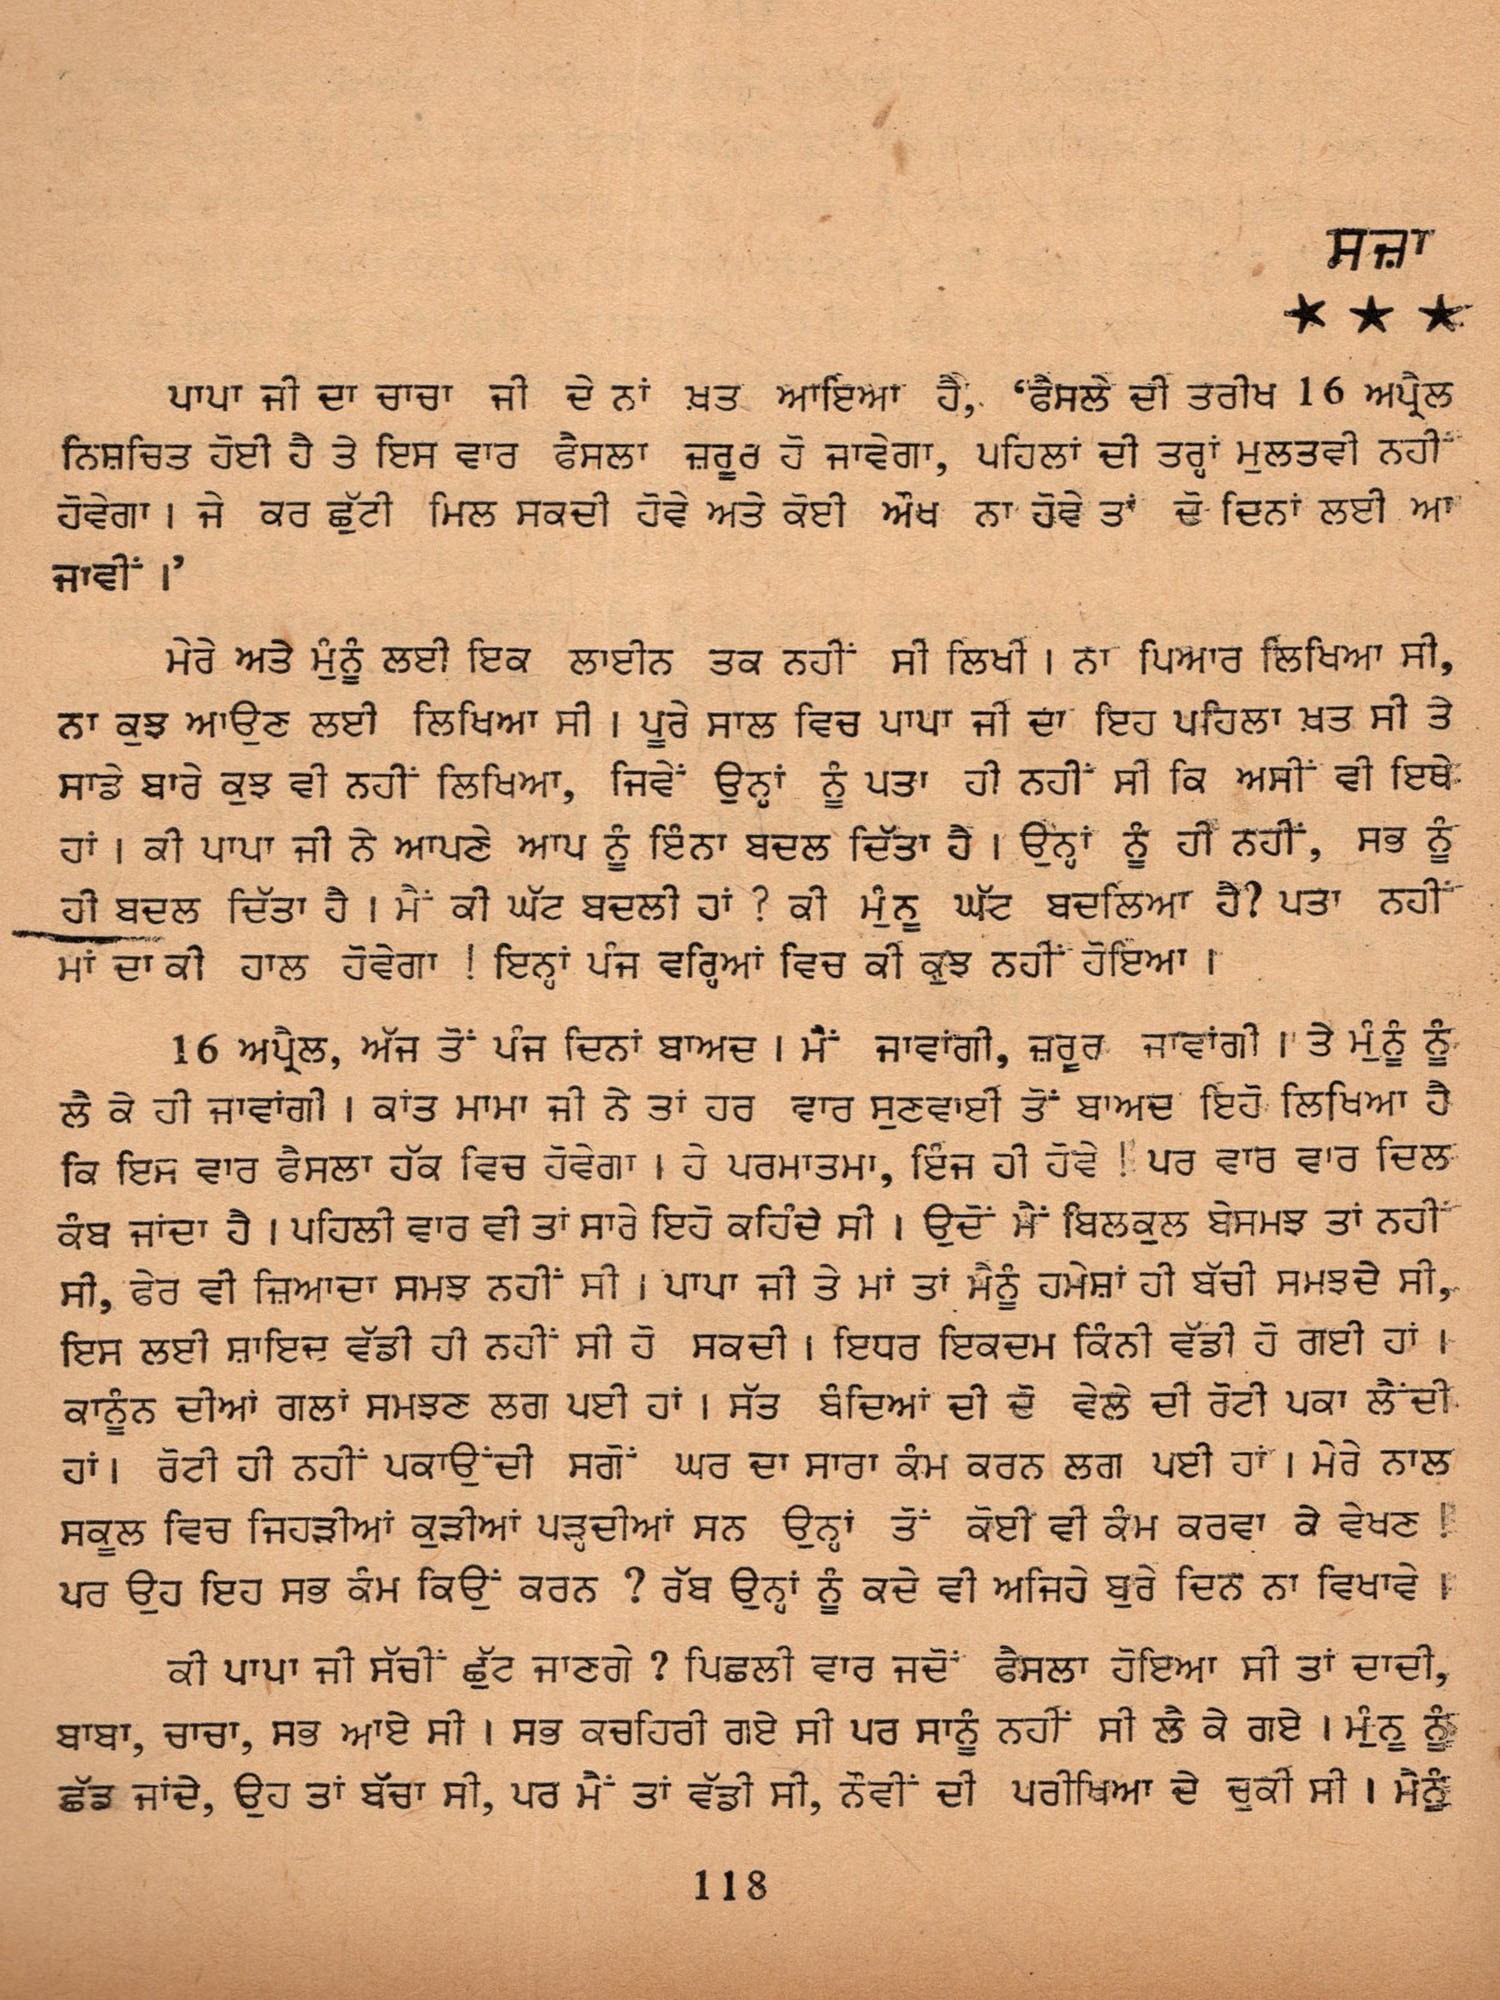 ਸਜ਼ਾ
★ ★ ★
ਪਾਪਾ ਜੀ ਦਾ ਚਾਚਾ ਜੀ ਦੇ ਨਾਂ ਖ਼ਤ ਆਇਆ ਹੈ, ‘ਫੈਸਲੇ ਦੀ ਤਰੀਖ 16 ਅਪ੍ਰੈਲ
ਨਿਸ਼ਚਿਤ ਹੋਈ ਹੈ ਤੇ ਇਸ ਵਾਰ ਫੈਸਲਾ ਜ਼ਰੂਰ ਹੋ ਜਾਵੇਗਾ, ਪਹਿਲਾਂ ਦੀ ਤਰ੍ਹਾਂ ਮੁਲਤਵੀ ਨਹੀਂ
ਹੋਵੇਗਾ। ਜੇ ਕਰ ਛੁੱਟੀ ਮਿਲ ਸਕਦੀ ਹੋਵੇ ਅਤੇ ਕੋਈ ਔਖ ਨਾ ਹੋਵੇ ਤਾਂ ਦੋ ਦਿਨਾਂ ਲਈ ਆ
ਜਾਵੀਂ।’
ਮੇਰੇ ਅਤੇ ਮੁੰਨੂੰ ਲਈ ਇਕ ਲਾਈਨ ਤਕ ਨਹੀਂ ਸੀ ਲਿਖੀ। ਨਾ ਪਿਆਰ ਲਿਖਿਆ ਸੀ,
ਨਾ ਕੁਝ ਆਉਣ ਲਈ ਲਿਖਿਆ ਸੀ। ਪੂਰੇ ਸਾਲ ਵਿਚ ਪਾਪਾ ਜੀ ਦਾ ਇਹ ਪਹਿਲਾ ਖ਼ਤ ਸੀ ਤੇ
ਸਾਡੇ ਬਾਰੇ ਕੁਝ ਵੀ ਨਹੀਂ ਲਿਖਿਆ, ਜਿਵੇਂ ਉਨ੍ਹਾਂ ਨੂੰ ਪਤਾ ਹੀ ਨਹੀਂ ਸੀ ਕਿ ਅਸੀਂ ਵੀ ਇਥੇ
ਹਾਂ। ਕੀ ਪਾਪਾ ਜੀ ਨੇ ਆਪਣੇ ਆਪ ਨੂੰ ਇੰਨਾ ਬਦਲ ਦਿੱਤਾ ਹੈ। ਉਨ੍ਹਾਂ ਨੂੰ ਹੀ ਨਹੀਂ, ਸਭ ਨੂੰ
ਹੀ ਬਦਲ ਦਿੱਤਾ ਹੈ। ਮੈਂ ਕੀ ਘੱਟ ਬਦਲੀ ਹਾਂ? ਕੀ ਮੁੰਨੂ ਘੱਟ ਬਦਲਿਆ ਹੈ? ਪਤਾ ਨਹੀਂ
ਮਾਂ ਦਾ ਕੀ ਹਾਲ ਹੋਵੇਗਾ! ਇਨ੍ਹਾਂ ਪੰਜ ਵਰ੍ਹਿਆਂ ਵਿਚ ਕੀ ਕੁਝ ਨਹੀਂ ਹੋਇਆ।
16 ਅਪ੍ਰੈਲ, ਅੱਜ ਤੋਂ ਪੰਜ ਦਿਨਾਂ ਬਾਅਦ। ਮੈਂ ਜਾਵਾਂਗੀ, ਜ਼ਰੂਰ ਜਾਵਾਂਗੀ। ਤੇ ਮੁੰਨੂੰ ਨੂੰ
ਲੈ ਕੇ ਹੀ ਜਾਵਾਂਗੀ। ਕਾਂਤ ਮਾਮਾ ਜੀ ਨੇ ਤਾਂ ਹਰ ਵਾਰ ਸੁਣਵਾਈ ਤੋਂ ਬਾਅਦ ਇਹੋ ਲਿਖਿਆ ਹੈ
ਕਿ ਇਸ ਵਾਰ ਫੈਸਲਾ ਹੱਕ ਵਿਚ ਹੋਵੇਗਾ। ਹੇ ਪਰਮਾਤਮਾ, ਇੰਜ ਹੀ ਹੋਵੇ! ਪਰ ਵਾਰ ਵਾਰ ਦਿਲ
ਕੰਬ ਜਾਂਦਾ ਹੈ। ਪਹਿਲੀ ਵਾਰ ਵੀ ਤਾਂ ਸਾਰੇ ਇਹੋ ਕਹਿੰਦੇ ਸੀ। ਉਦੋਂ ਮੈਂ ਬਿਲਕੁਲ ਬੇਸਮਝ ਤਾਂ ਨਹੀਂ
ਸੀ, ਫੇਰ ਵੀ ਜ਼ਿਆਦਾ ਸਮਝ ਨਹੀਂ ਸੀ। ਪਾਪਾ ਜੀ ਤੇ ਮਾਂ ਤਾਂ ਮੈਨੂੰ ਹਮੇਸ਼ਾਂ ਹੀ ਬੱਚੀ ਸਮਝਦੇ ਸੀ,
ਇਸ ਲਈ ਸ਼ਾਇਦ ਵੱਡੀ ਹੀ ਨਹੀਂ ਸੀ ਹੋ ਸਕਦੀ। ਇਧਰ ਇਕਦਮ ਕਿੰਨੀ ਵੱਡੀ ਹੋ ਗਈ ਹਾਂ।
ਕਾਨੂੰਨ ਦੀਆਂ ਗਲਾਂ ਸਮਝਣ ਲਗ ਪਈ ਹਾਂ। ਸੱਤ ਬੰਦਿਆਂ ਦੀ ਦੋ ਵੇਲੇ ਦੀ ਰੋਟੀ ਪਕਾ ਲੈਂਦੀ
ਹਾਂ। ਰੋਟੀ ਹੀ ਨਹੀਂ ਪਕਾਉਂਦੀ ਸਗੋਂ ਘਰ ਦਾ ਸਾਰਾ ਕੰਮ ਕਰਨ ਲਗ ਪਈ ਹਾਂ। ਮੇਰੇ ਨਾਲ
ਸਕੂਲ ਵਿਚ ਜਿਹੜੀਆਂ ਕੁੜੀਆਂ ਪੜ੍ਹਦੀਆਂ ਸਨ ਉਨ੍ਹਾਂ ਤੋਂ ਕੋਈ ਵੀ ਕੰਮ ਕਰਵਾ ਕੇ ਵੇਖਣ!
ਪਰ ਉਹ ਇਹ ਸਭ ਕੰਮ ਕਿਉਂ ਕਰਨ? ਰੱਬ ਉਨ੍ਹਾਂ ਨੂੰ ਕਦੇ ਵੀ ਅਜਿਹੇ ਬੁਰੇ ਦਿਨ ਨਾ ਵਿਖਾਵੇ।
ਕੀ ਪਾਪਾ ਜੀ ਸੱਚੀਂ ਛੁੱਟ ਜਾਣਗੇ? ਪਿਛਲੀ ਵਾਰ ਜਦੋਂ ਫੈਸਲਾ ਹੋਇਆ ਸੀ ਤਾਂ ਦਾਦੀ,
ਬਾਬਾ, ਚਾਚਾ, ਸਭ ਆਏ ਸੀ। ਸਭ ਕਚਹਿਰੀ ਗਏ ਸੀ ਪਰ ਸਾਨੂੰ ਨਹੀਂ ਸੀ ਲੈ ਕੇ ਗਏ। ਮੁੰਨੂ ਨੂੰ
ਛੱਡ ਜਾਂਦੇ, ਉਹ ਤਾਂ ਬੱਚਾ ਸੀ, ਪਰ ਮੈਂ ਤਾਂ ਵੱਡੀ ਸੀ, ਨੌਵੀਂ ਦੀ ਪਰੀਖਿਆ ਦੇ ਚੁਕੀ ਸੀ। ਮੈਨੂੰ
118